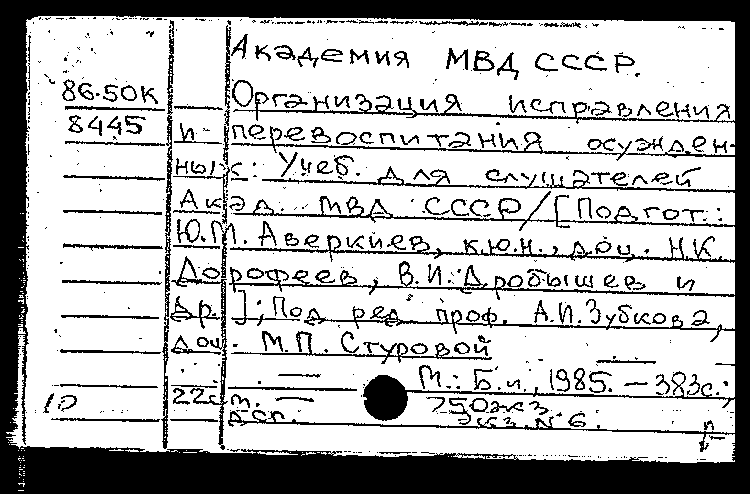 Академия МВД СССР.
86-50К Организация исправления
8445 и перевоспитания осужден-
ных: Учеб. для слушателей
Акад. МВД СССР / [Подгот.:
Ю.М. Аверкиев, к.ю.н., доц. Н.К.
Дорофеев, В.И. Дробышев и
др.]; Под ред. проф. А.И. Зубкова,
доц. М.П. Стуровой
М.: Б.и., 1985. — 383с.;
10 22см. — 750экз.
дсп. экз. N 6.